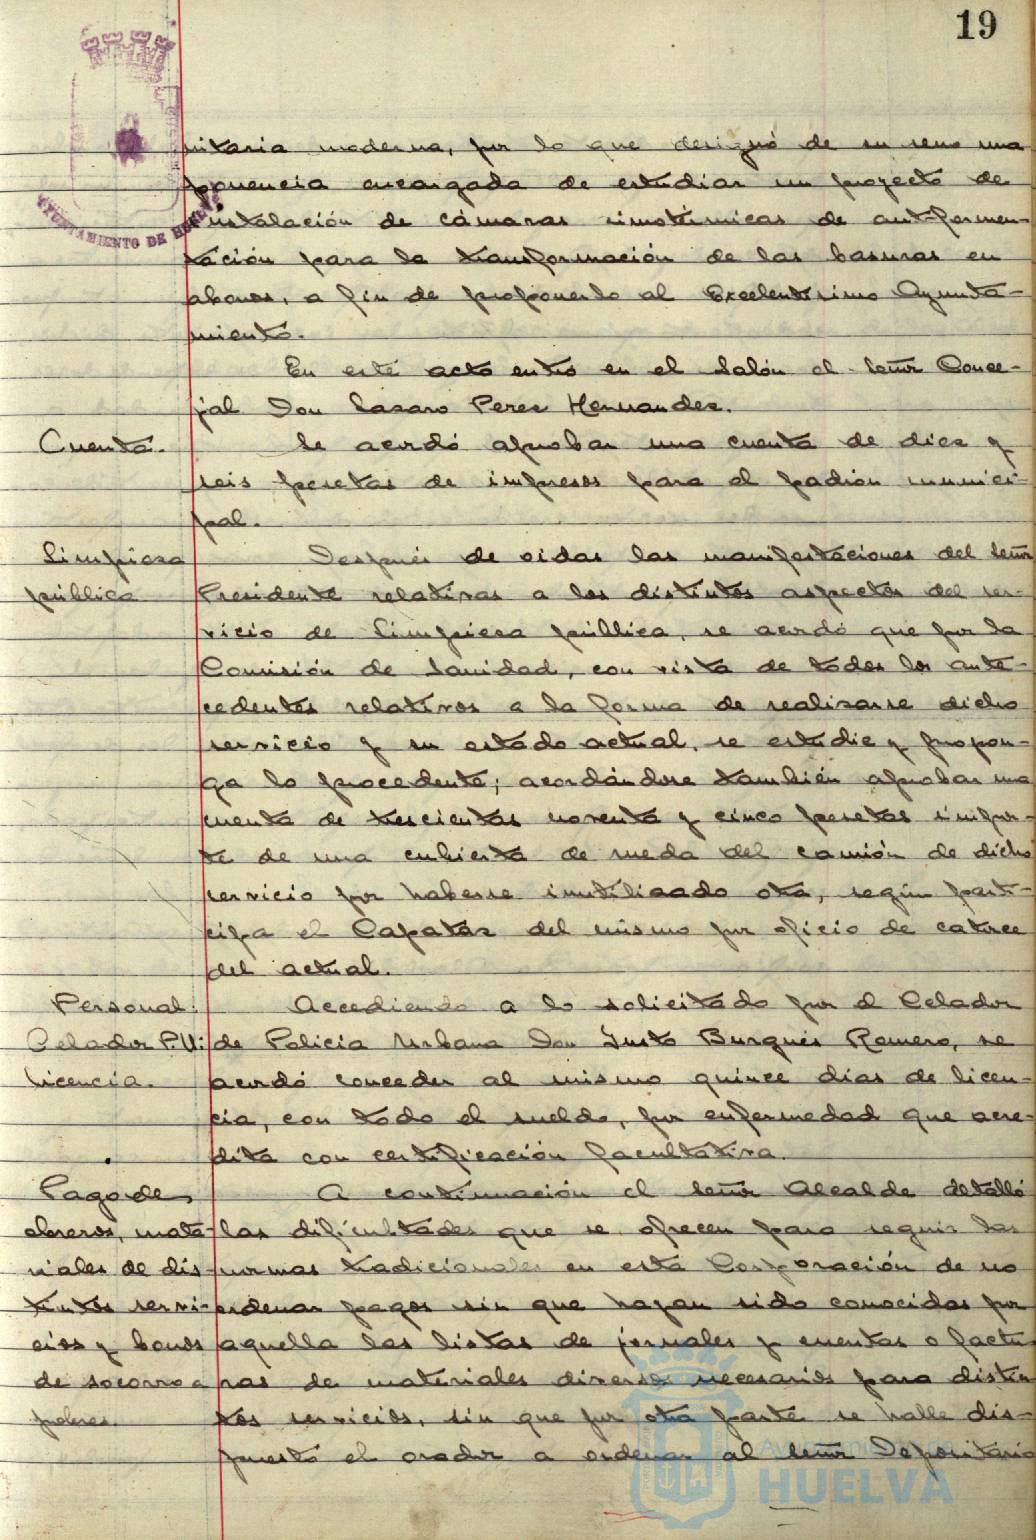 19
AYUNTAMIENTO DE HUELVA
nitaria moderna, por lo que designó de su seno una
ponencia encargada de estudiar un proyecto de
instalación de cámaras zimotérmicas de anti-fermen-
tación para la transformación de las basuras en
abonos, a fin de proponerlo al Excelentísimo Ayunta-
miento.
En este acto entró en el Salón el Señor Conce-
jal Don Lazaro Perez Hernandez.
Cuenta.
Se acordó aprobar una cuenta de diez y
seis pesetas de impresos para el padrón munici-
pal.
Limpieza
pública
Después de oidas las manifestaciones del Señor
Presidente relativas a los distintos aspectos del ser-
vicio de Limpieza pública, se acordó que por la
Comisión de Sanidad, con vista de todos los ante-
cedentes relativos a la forma de realizarse dicho
servicio y su estado actual, se estudie y propon-
ga lo procedente; acordándose también aprobar una
cuenta de trescientas noventa y cinco pesetas impor-
te de una cubierta de rueda del camión de dicho
servicio por haberse inutilizado otra, según parti-
cipa el Capataz del mismo por oficio de catorce
del actual.
Personal:
Celador P.U:
licencia.
Accediendo a lo solicitado por el Celador
de Policía Urbana Don Justo Burgués Romero, se
acordó conceder al mismo quince días de licen-
cia, con todo el sueldo, por enfermedad que acre-
dita con certificación facultativa.
Pago de
obreros, mate-
riales de dis-
tintos servi-
cios y bonos
de socorro a
pobres.
A continuación el Señor Alcalde detalló
las dificultades que se ofrecen para seguir las
normas tradicionales en esta Corporación de no
ordenar pagos sin que hayan sido conocidas por
aquella las listas de jornales y cuentas o factu
ras de materiales diversos necesarios para distin
tos servicios, sin que por otra parte se halle dis-
puesto el orador a ordenar al Señor Depositario
Ayuntamiento de
HUELVA